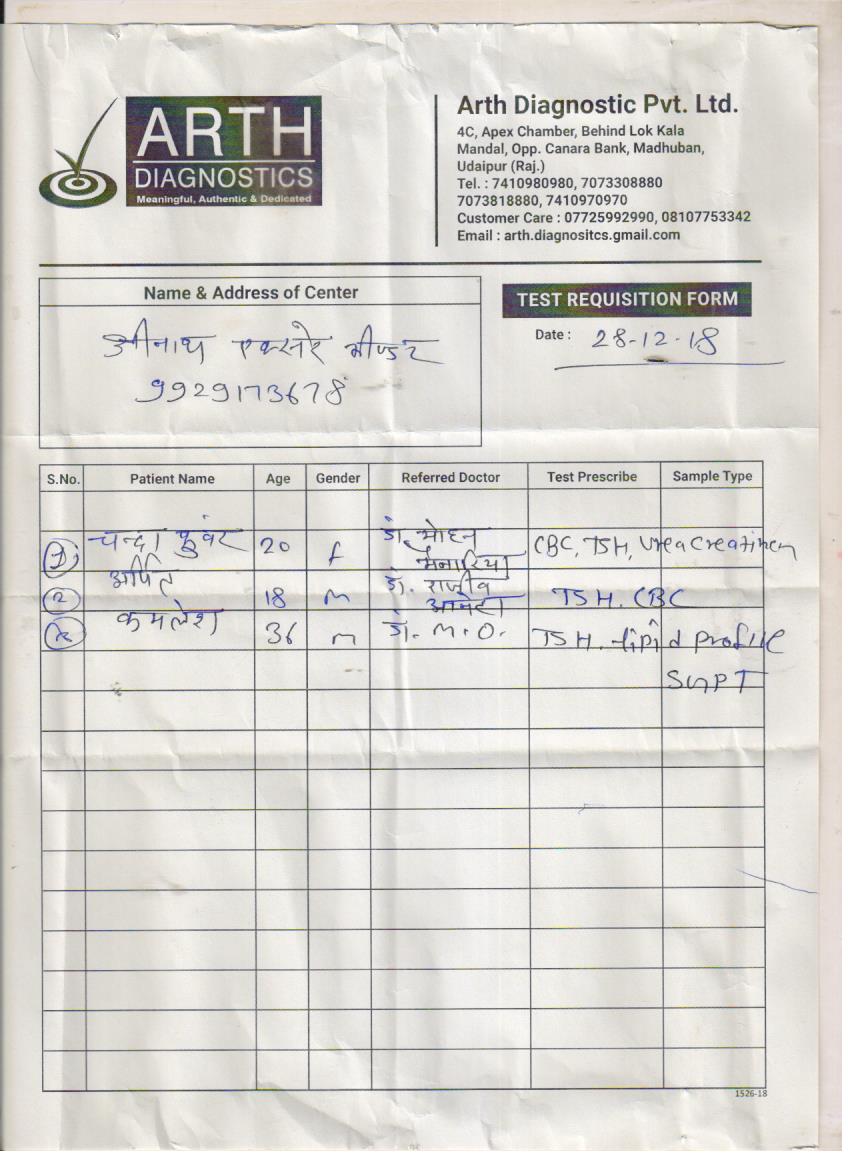 ARTH
DIAGNOSTICS
Meaningful, Authentic & Dedicated
Arth Diagnostic Pvt. Ltd.
4C, Apex Chamber, Behind Lok Kala
Mandal, Opp. Canara Bank, Madhuban,
Udaipur (Raj.)
Tel. : 7410980980, 7073308880
7073818880, 7410970970
Customer Care : 07725992990, 08107753342
Email : arth.diagnositcs.gmail.com
Name & Address of Center
श्रीनाथ एक्सरे भीण्डर
9929173678
TEST REQUISITION FORM
Date : 28-12-18
S.No. Patient Name Age Gender Referred Doctor Test Prescribe Sample Type
1 चन्दा कुंवर 20 f डॉ. मोहन मेनारिया CBC, TSH, Urea Creatinen
2 अर्पित 18 m डॉ. राजीव आमेटा TSH. CBC
कमलेश 36 m डॉ. M.O. TSH. lipid profile
SGPT
1526-18